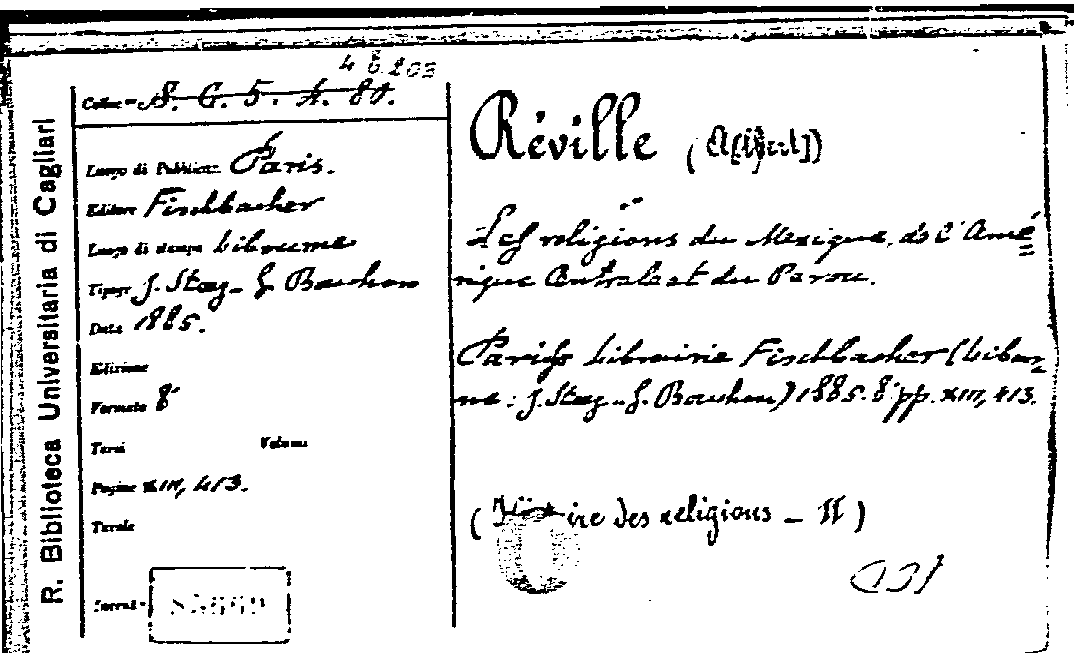 R. Biblioteca Universitaria di Cagliari
4 6 203
Colloc.- S. G. 5. 4. 80.
Luogo di Pubblicaz. Paris.
Editore Fischbacher
Luogo di stampa Libourne
Tipogr. J. Steeg - G. Bouchon
Data 1885.
Edizione
Formato 8°
Tomi Volumi
Pagine XIII, 413.
Tavole
Réville (A[lbert])
Les religions du Mexique, de l'Amé=
rique Centrale et du Perou.
Paris, Librairie Fischbacher (Libour=
ne: J. Steeg - G. Bouchon) 1885. 8° pp. XIII, 413.
(Histoire des religions - II)